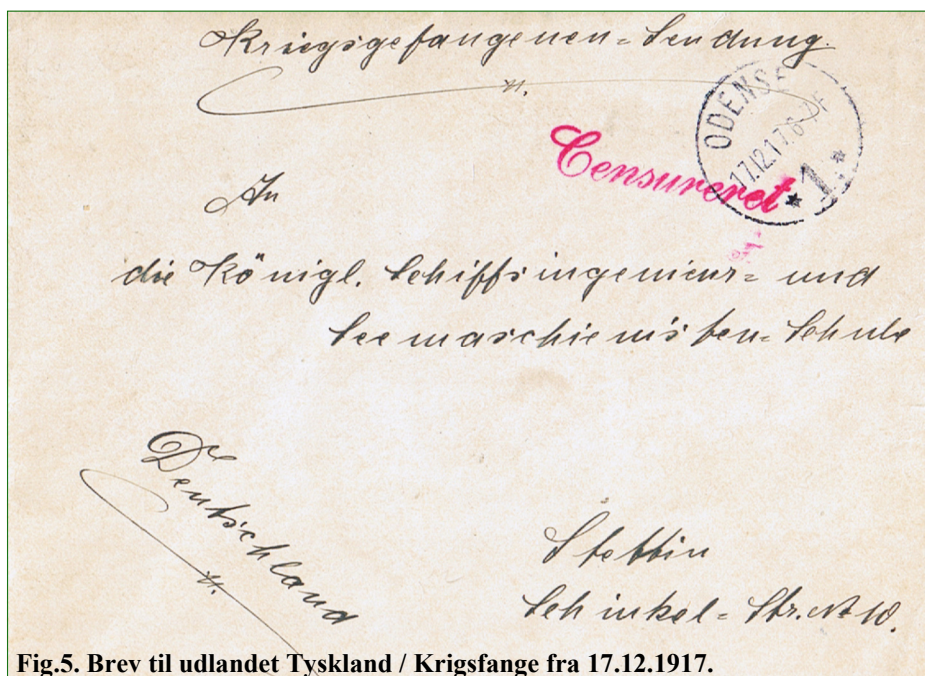 Kriegsgefangenen=Sendung.
ODENSE
17.12.17. 6-7 F
* 1 *
Censureret
An
die Königl. Schiffsingenieur= und
Seemaschienisten=Schule
Deutschland
Stettin
Schinkel=Str. № 10.
Fig.5. Brev til udlandet Tyskland / Krigsfange fra 17.12.1917.